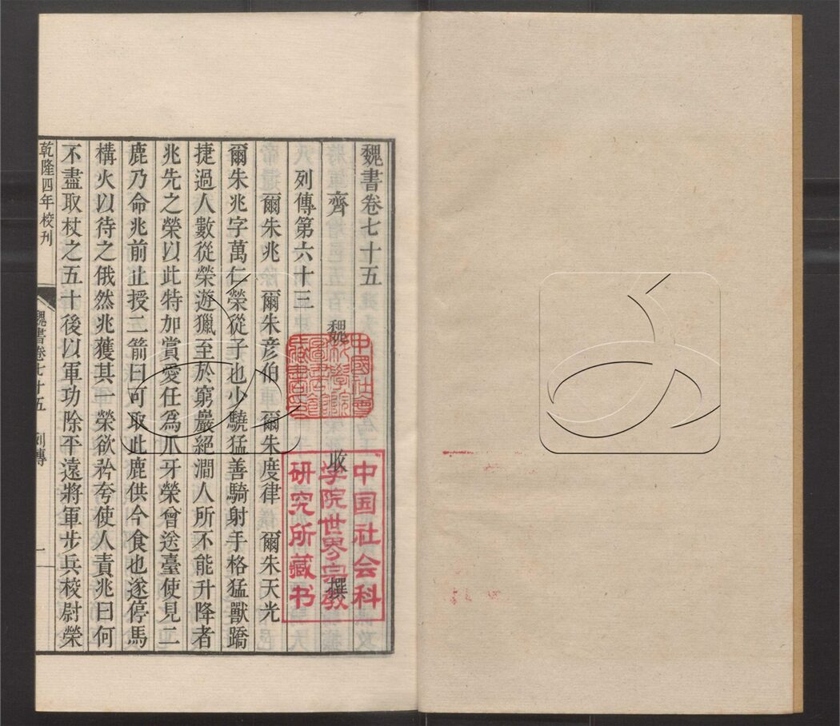 魏書卷七十五
齊　魏　收　撰
列傳第六十三
爾朱兆　爾朱彦伯　爾朱度律　爾朱天光
爾朱兆字萬仁榮從子也少驍猛善騎射手格猛獸蹻
捷過人數從榮遊獵至於窮巖絕澗人所不能升降者
兆先之榮以此特加賞愛任爲爪牙榮曾送臺使見二
鹿乃命兆前止授二箭曰可取此鹿供今食也遂停馬
構火以待之俄然兆獲其一榮欲矜夸使人責兆曰何
不盡取杖之五十後以軍功除平遠將軍步兵校尉榮
乾隆四年校刊
魏書卷七十五　列傳
一
中國社會
科學院
圖書館
藏書印
中国社会科
学院世界宗教
研究所藏书